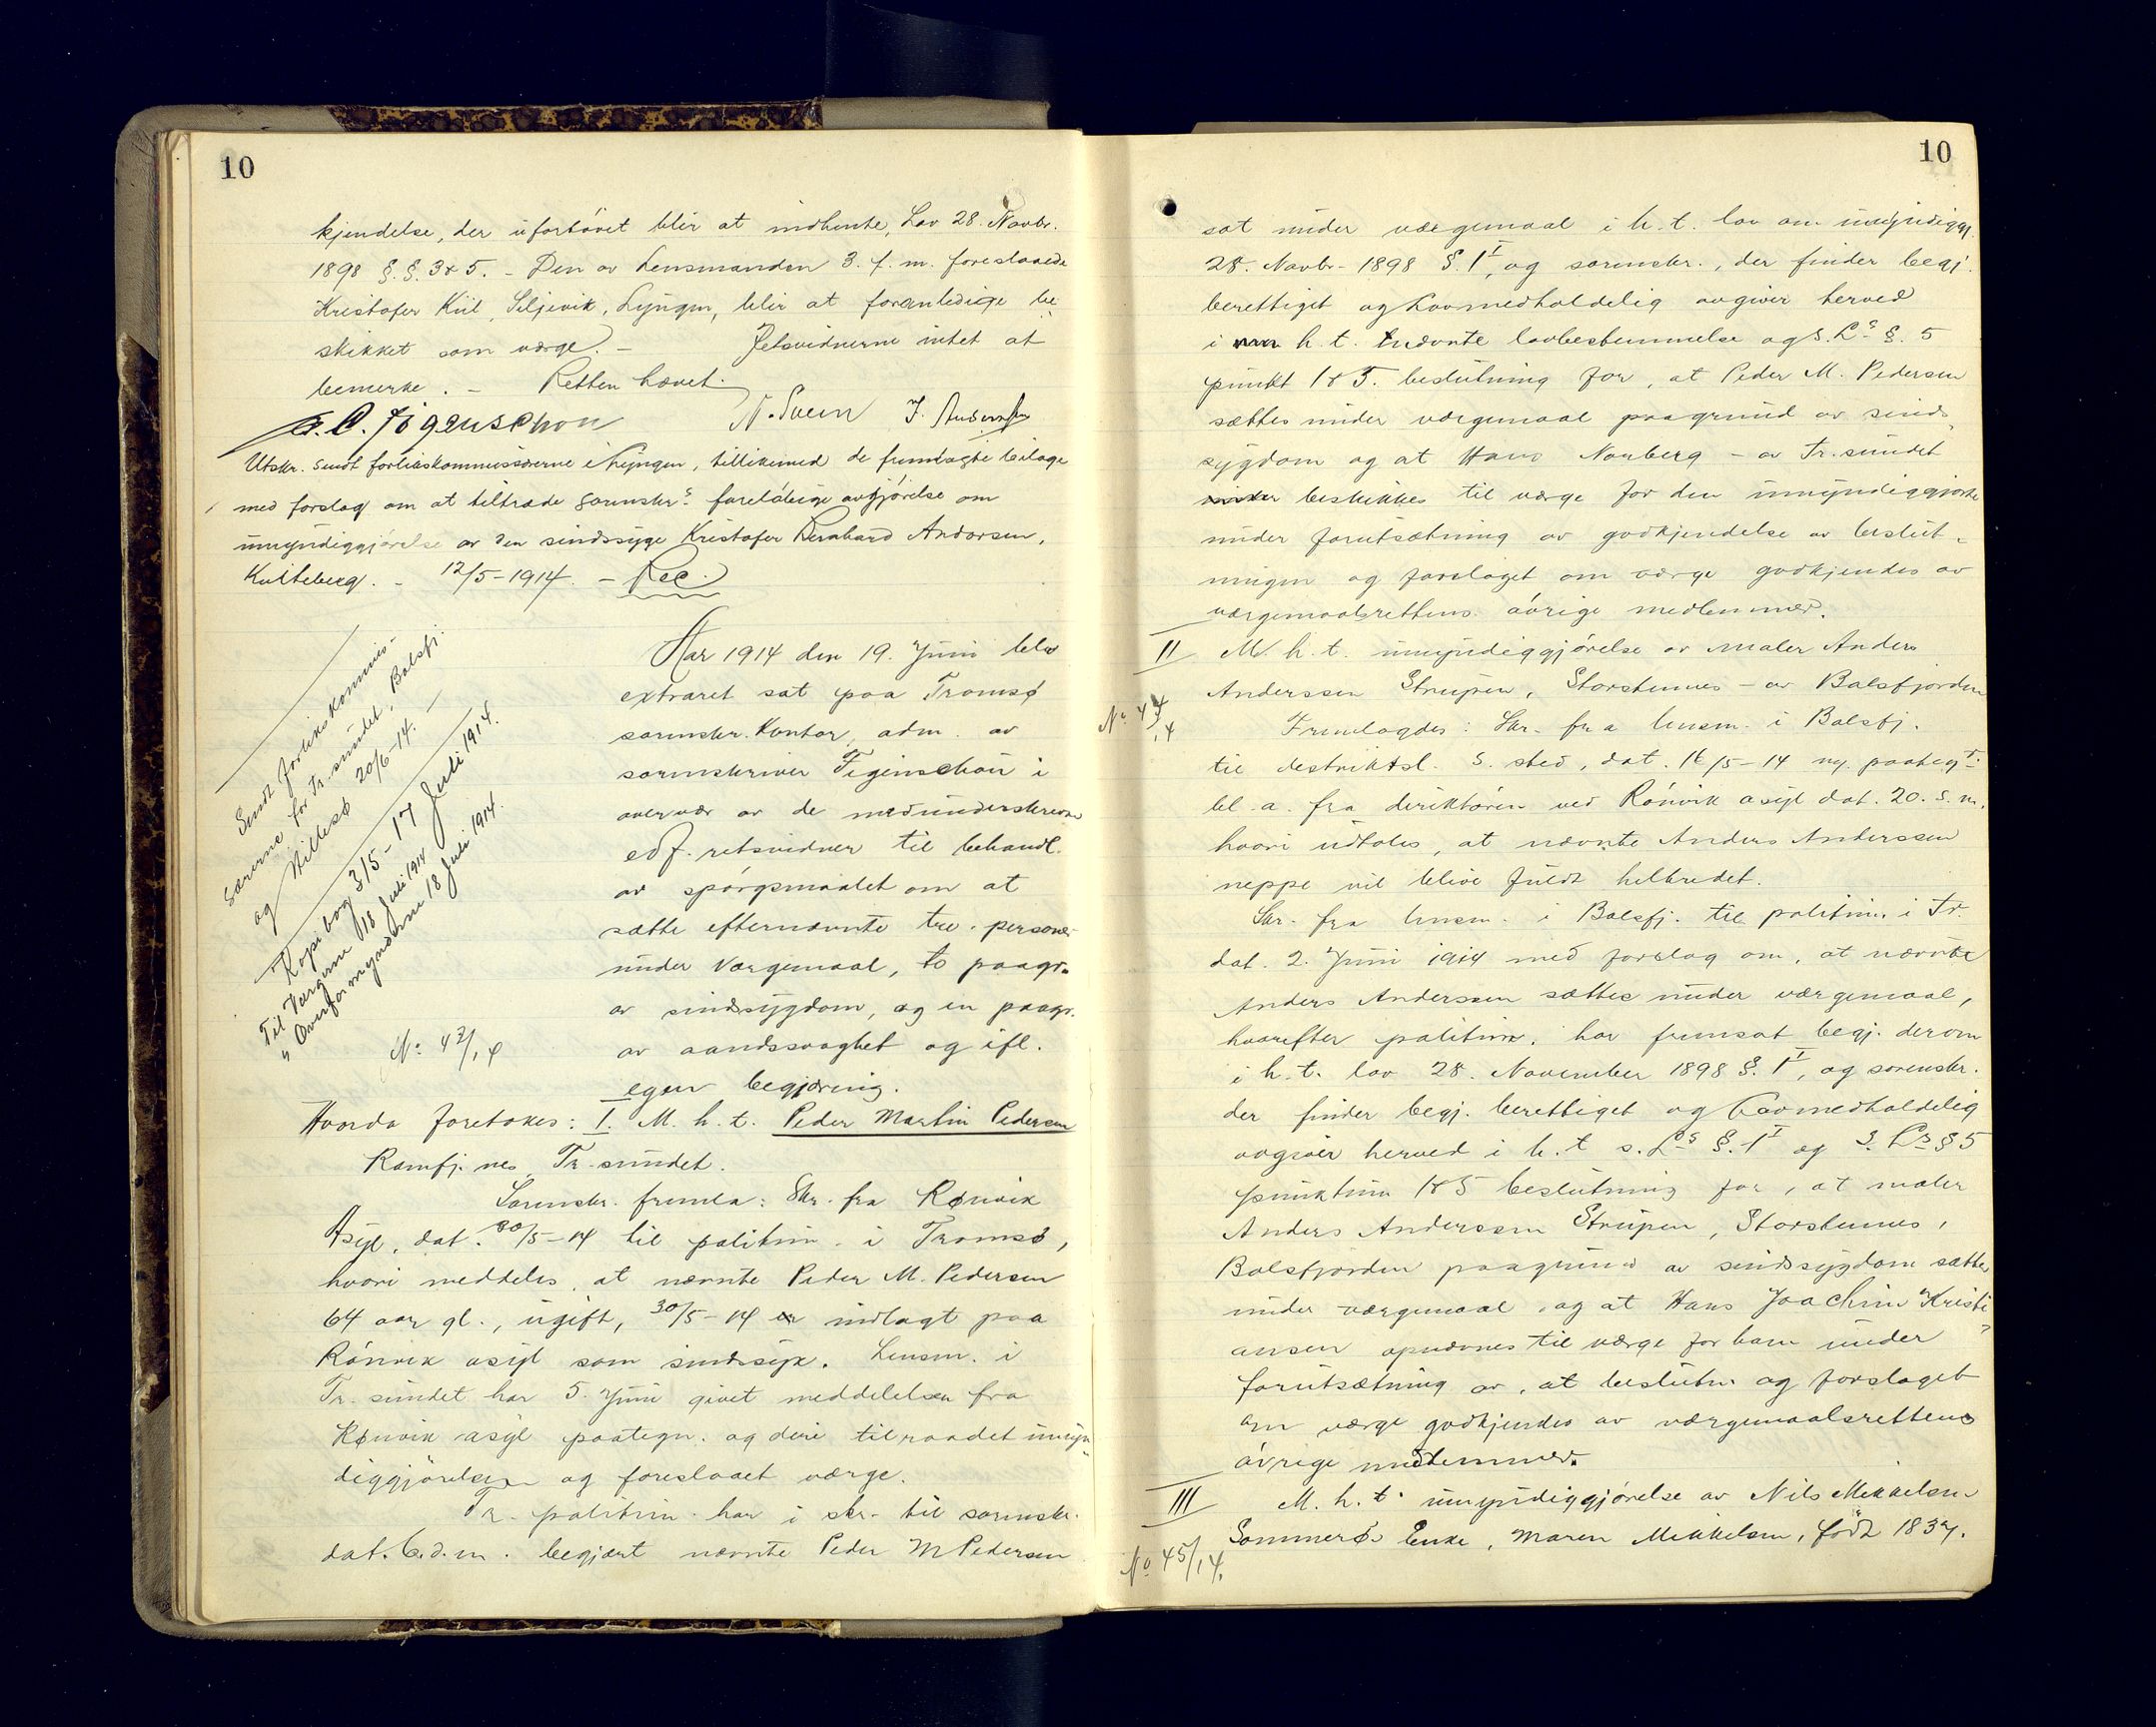 10
kjendelse, der ufortövet blir at indhente, Lov 28. Novbr.
1898 §.§. 3 & 5. - Den av Lensmanden 3. f. m. foreslaaede
Kristofer Kiil, Seljevik, Lyngen, blir at foranledige be"
skikket som værge. - Retsvidnerne intet at
bemerke. - Retten hævet.
N. Sveen J. Andersen
Utskr. sendt forlikskommissærerne i Lyngen, tillikemed de fremlagte bilage
med forslag om at tiltræde sorenskr.s foreløbige avgjörelse om
umyndiggjørelse av den sindssyge Kristofer Bernhard Andorsen,
Kvitteberg. - 12/5-1914. - Rec.
Sendt forlikskommis-
særerne for Tr.sundet, Balsfj.
og Hillesö 20/6-14. -
Kopibog 315 - 17 Juli 1914.
Til Værgerne 18 Juli 1914
" Overformynderne 18 Juli 1914.
No 43/14
Aar 1914 den 19. Juni blev
extraret sat paa Tromsø
sorenskr. kontor, adm. av
sorenskriver Figenschou i
overvær av de medunderskrevne
edf. retsvidner til behandl.
av spörgsmaalet om at
sætte efternævnte tre personer
under Værgemaal, to paagr.
av sindssygdom, og en paagr.
av aandssvaghet og ifl.
egen begjæring.
Hvorda foretokes: I. M. h. t. Peder Martin Pedersen
Ramfj.nes, Tr.sundet.
Sorenskr. fremla: Skr. fra Rønvik
Asyl, dat. 30/5-14 til politim. i Tromsö,
hvori meddeles, at nævnte Peder M. Pedersen
64 aar gl., ugift, 30/5-14 er indlagt paa
Rönvik asyl som sindssyk. Lensm. i
Tr.sundet har 5. Juni givet meddelelsen fra
Rønvik asyl paategn. og deri tilraadet umyn"
diggjörelsen og foreslaaet værge.
Tr. politim. har i skr. til sorenskr.
dat. 6. d. m. begjært nævnte Peder M Pedersen
10
sat under værgemaal i h. t. lov om umyndiggj.
28. Novbr. 1898 §. 1 I, og sorenskr., der finder begj.
berettiget og Lovmedholdelig avgiver herved
i h. t. nævnte lovbestemmelse og s. L.s §. 5
punkt 1 & 5. beslutning for, at Peder M. Pedersen
sættes under værgemaal paagrund av sinds
sygdom og at Hans Norberg - av Tr.sundet
beskikkes til værge for den umyndiggjorte
under forutsætning av godkjendelse av beslut-
ningen og forslaget om værge godkjendes av
værgemaalsrettens övrige medlemmer.
II M. h. t. umyndiggjörelse av maler Anders
Anderssen Strupen, Storstennes - av Balsfjorden
No 44/14
Fremlagdes: Skr. fra lensm. i Balsfj.
til distriktsl. s. sted, dat. 16/5-14 m. paategn.
bl. a. fra direktören ved Rönvik asyl dat. 20. s. m.
hvori udtales, at nævnte Anders Anderssen
neppe vil blive fuldt helbredet.
Skr. fra lensm. i Balsfj. til politim. i Tr.
dat. 2. Juni 1914 med forslag om, at nævnte
Anders Anderssen sættes under værgemaal,
hvorefter politim. har fremsat begj. derom
i h. t. lov 28. November 1898 §. 1 I, og sorenskr.
der finder begj. berettiget og Lovmedholdelig
avgiver herved i h. t s. L.s §. 1 I og s. L.s § 5
punktum 1 & 5 beslutning for, at maler
Anders Anderssen Strupen, Storstennes,
Balsfjorden paagrund av sindssygdom sættes
under værgemaal, og at Hans Joachim Kristi
ansen opnævnes til værge for ham under
forutsætning av, at beslutn. og forslaget
om værge godkjendes av værgemaalsrettens
övrige medlemmer.
III M. h. t. umyndiggjörelse av Nils Mikkelsen
Sommerøs Enke, Maren Mikkelsen, född 1837.
No 45/14.